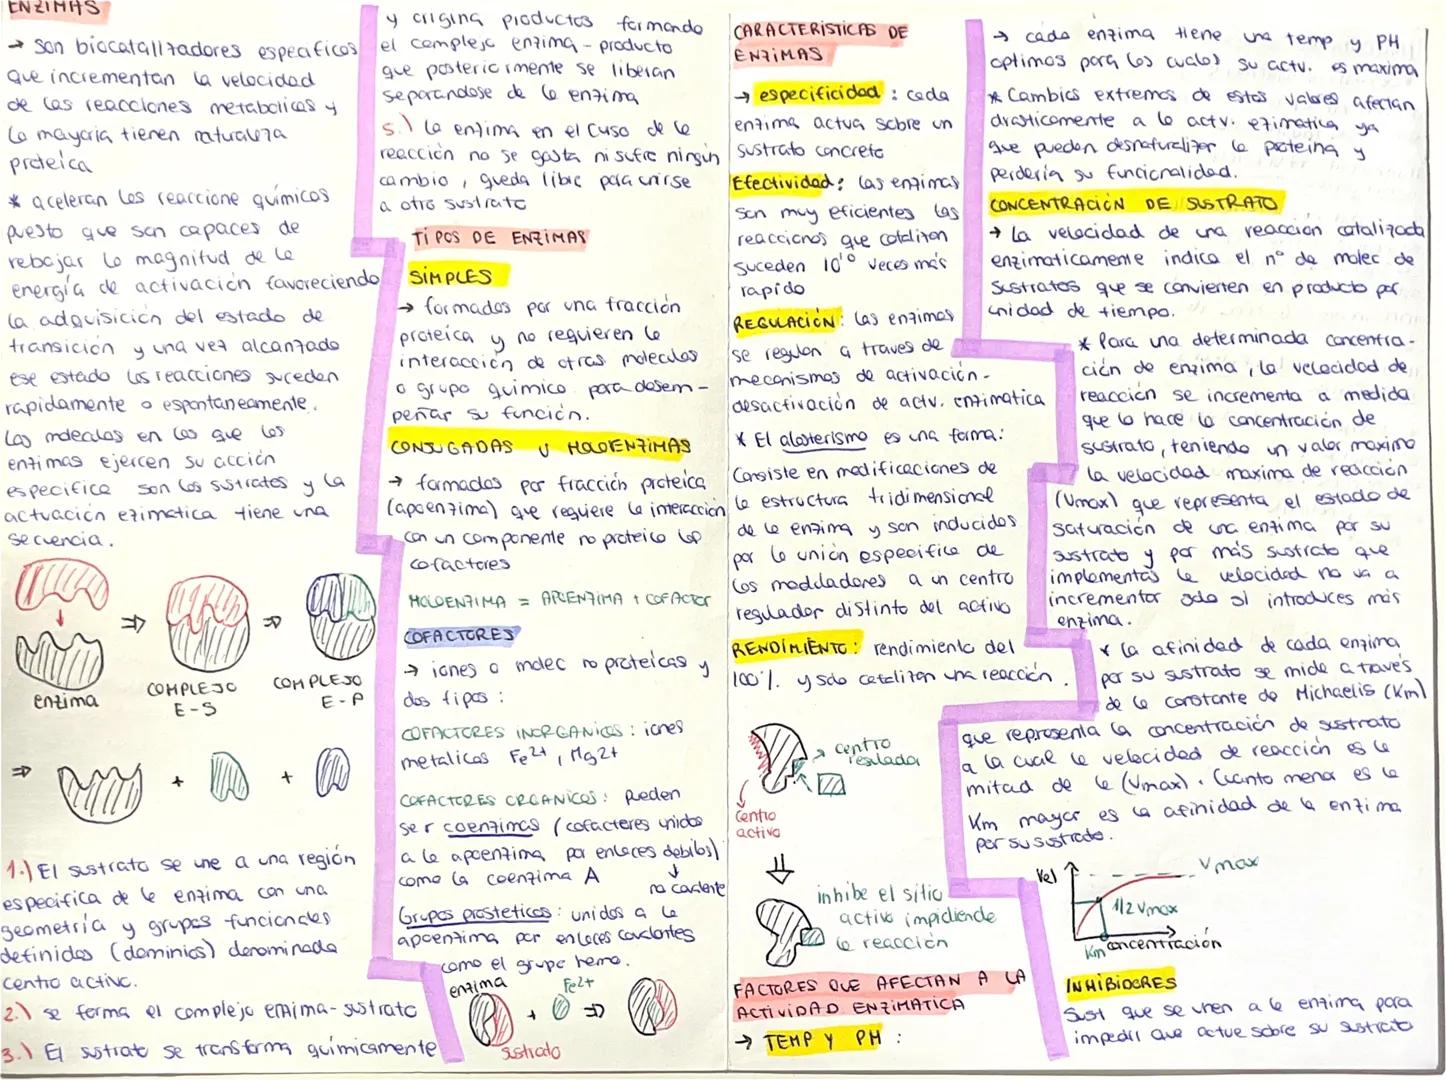 ENZIMAS
→ son biocatalizadores especificos
que incrementan la velocidad
de las reacciones metabolicas y
la mayoria tienen naturaleza
proteica
* aceleran las reaccione químicas
puesto que son capaces de
rebajar la magnitud de la
energía de activación favoreciendo
la adquisición del estado de
transición y una vez alcanzado
ese estado las reacciones suceden
rapidamente o espontaneamente.
Las moleculas en las que las
enzimas ejercen su acción
especifica son los sustratos y la
actuación ezimatica tiene una
secuencia.
enzima
COMPLEJO
E-S
COMPLEJO
E-P
1.) El sustrato se une a una región
especifica de la enzima con una
geometría y grupos funcionales
definidos (dominios) denominada
centro activo.
2.) se forma el complejo enzima-sustrato
3.) El sustrato se transforma químicamente
y origina productos formando
el complejo enzima-producto
que posteriormente se liberan
separandose de la enzima
5.) La enzima en el curso de la
reacción no se gasta ni sufre ningún
cambio, queda libre para unirse
a otro sustrato
TIPOS DE ENZIMAS
SIMPLES
→ formadas por una fracción
proteica y no requieren la
interacción de otras moleculas
o grupo químico para desem-
peñar su función.
CONJUGADAS y HOLOENZIMAS
→ formadas por fracción proteica
(apoenzima) que requiere la interacción
con un componente no proteico los
cofactores
HOLOENZIMA = APOENZIMA + COFACTOR
COFACTORES
→ iones o molec no proteicas y
dos tipos:
COFACTORES INORGANICOS: iones
metalicos Fe2+, Mg2+
COFACTORES ORGANICOS: Pueden
ser coenzimas (cofactores unidos
a la apoenzima por enlaces debiles)
como la coenzima A
↓
no covalente
Grupos prosteticos: unidos a la
apoenzima por enlaces covalentes
como el grupo hemo.
enzima
Fe2+
sustrato
CARACTERÍSTICAS DE
ENZIMAS
→ especificidad: cada
enzima actua sobre un
sustrato concreto
Efectividad: las enzimas
son muy eficientes las
reacciones que catalizan
suceden 10¹⁰ veces más
rapido
REGULACIÓN: las enzimas
se regulan a traves de
mecanismos de activación-
desactivación de actv. enzimatica
* El alosterismo es una forma:
Consiste en modificaciones de
la estructura tridimensional
de la enzima y son inducidos
por la unión especifica de
los moduladores a un centro
regulador distinto del activo
RENDIMIENTO: rendimiento del
100%. y solo catalizan una reacción.
centro
regulador
Centro
activo
inhibe el sitio
activo impidiendo
la reacción
FACTORES QUE AFECTAN A LA
ACTIVIDAD ENZIMATICA
→ TEMP Y PH:
→ cada enzima tiene una temp y PH
optimos para los cuales su actv. es maxima
* Cambios extremos de estos valores afectan
drasticamente a la actv. ezimatica ya
que pueden desnaturalizar la proteina y
perdería su funcionalidad.
CONCENTRACIÓN DE SUSTRATO
→ La velocidad de una reacción catalizada
enzimaticamente indica el nº de molec de
sustratos que se convierten en producto por
unidad de tiempo.
* Para una determinada concentra-
ción de enzima, la velocidad de
reacción se incrementa a medida
que lo hace la concentración de
sustrato, teniendo un valor maximo
la velocidad maxima de reacción
(Vmax) que representa el estado de
saturación de una enzima por su
sustrato y por más sustrato que
implementas la velocidad no va a
incrementar solo si introduces mas
enzima.
* La afinidad de cada enzima
por su sustrato se mide a través
de la constante de Michaelis (Km)
que representa la concentración de sustrato
a la cual la velocidad de reacción es la
mitad de la (Vmax). Cuanto menor es la
Km mayor es la afinidad de la enzima
por su sustrato.
Vel
Vmax
1/2 Vmax
Km
concentración
INHIBIDORES
Sust que se unen a la enzima para
impedir que actue sobre su sustrato